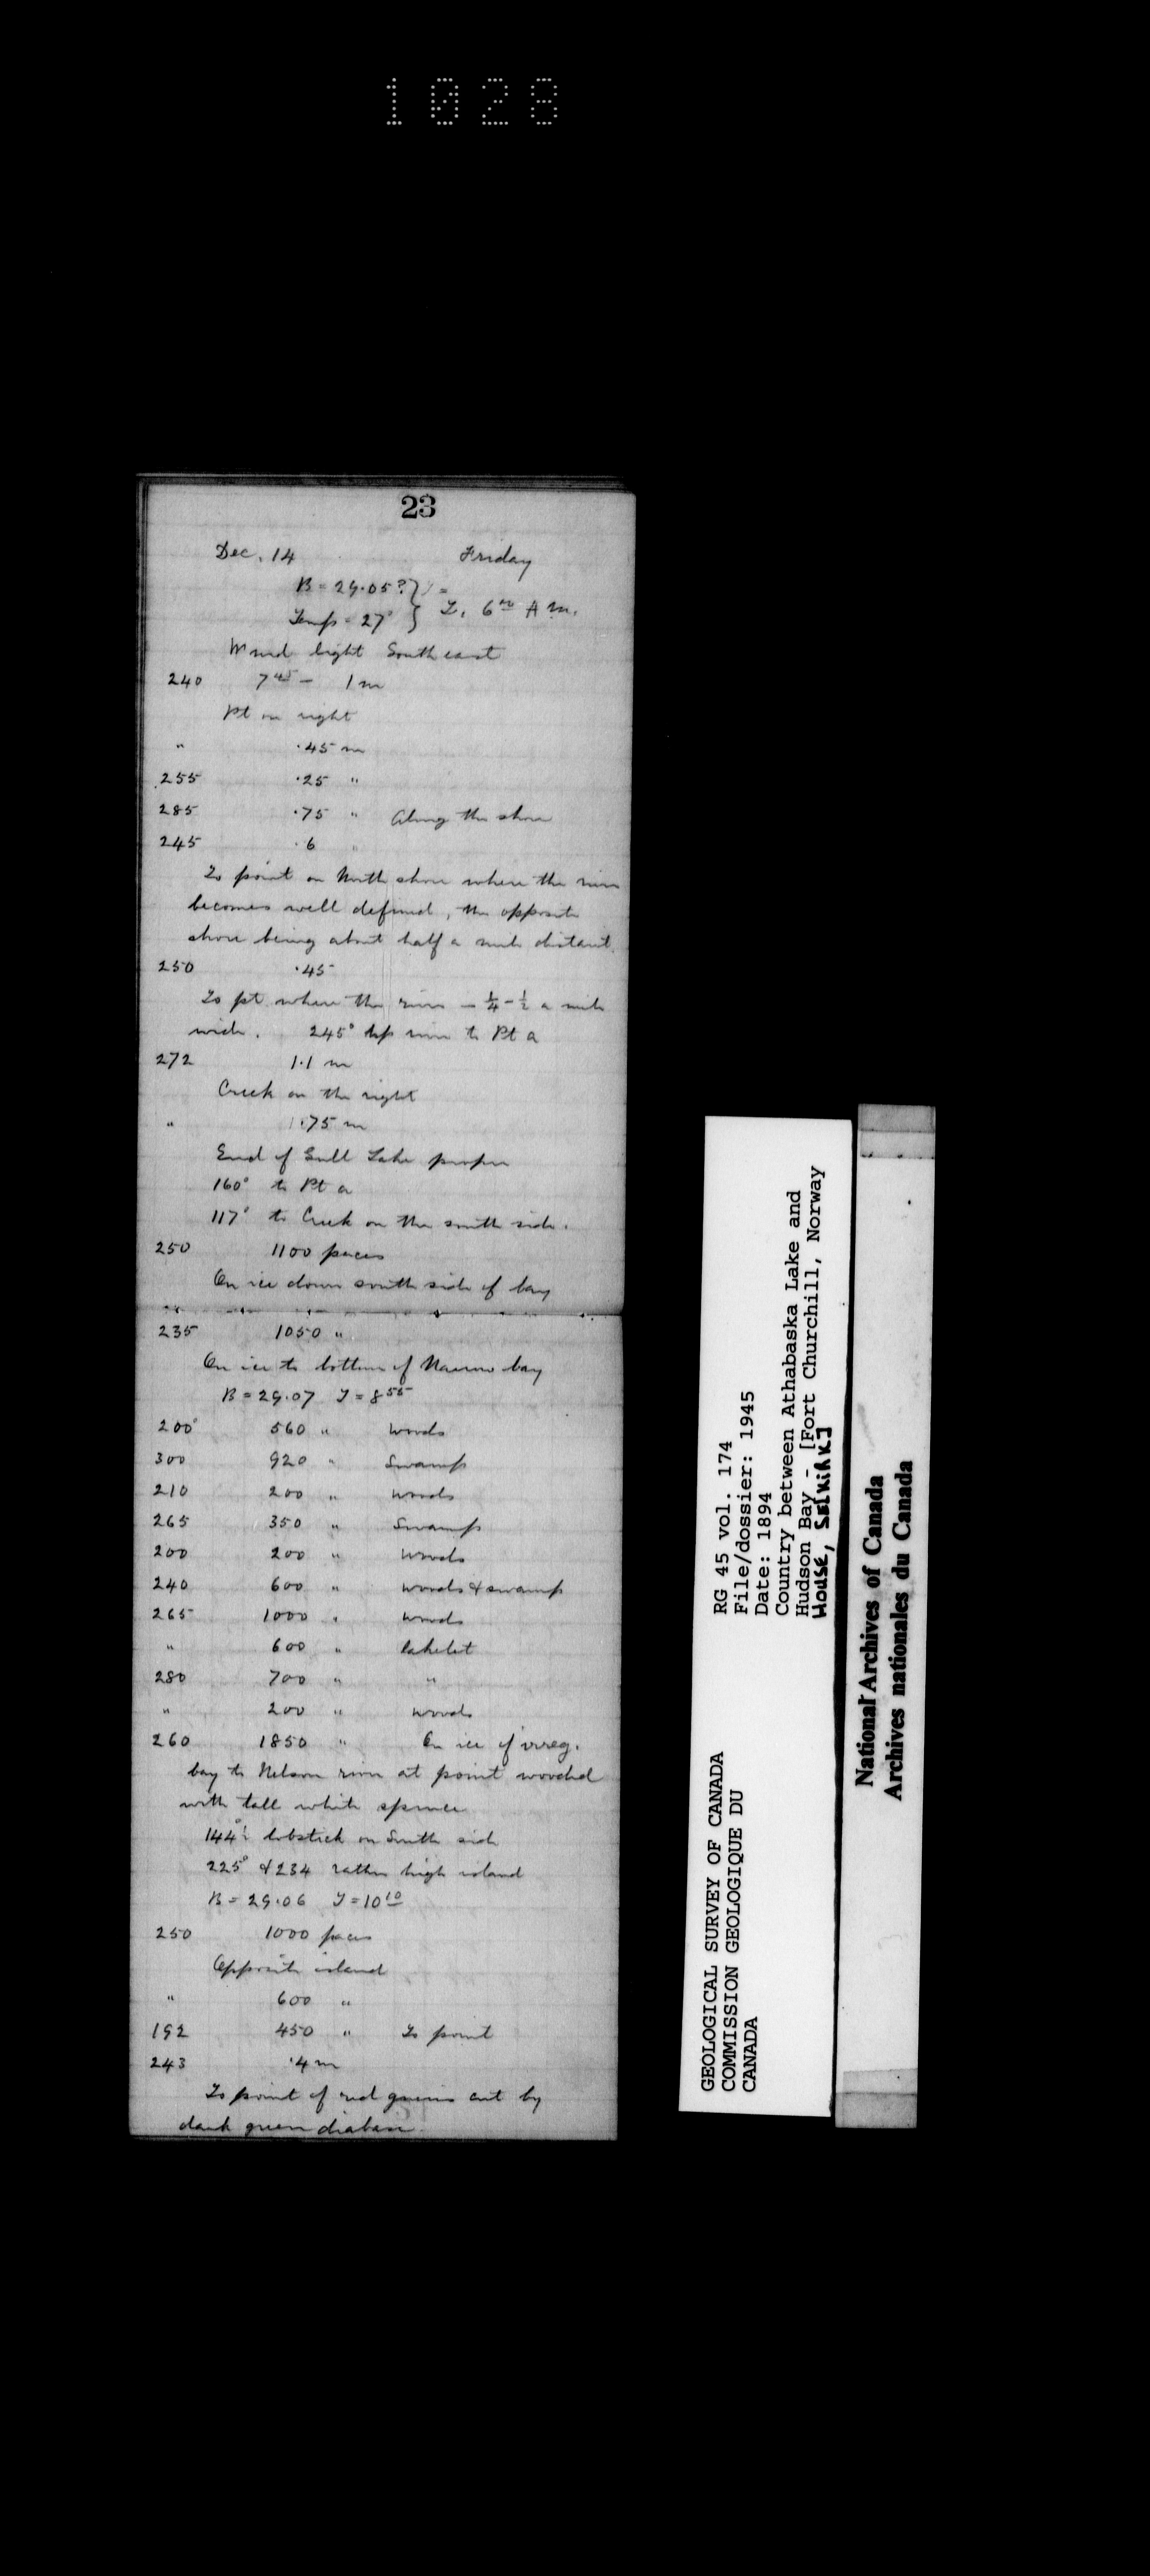 1028
23
Dec. 14 Friday
B = 29.05? } =
Temp - 27° } T. 6 00 A m.
Wind light South east
240 7 45 - 1 m
Pt on right
" .45 m
255 .25 "
285 .75 " Along the shore
245 .6 "
To point on North shore where the river
becomes well defined, the opposite
shore being about half a mile distant.
250 .45
To pt where the river is ¼ - ½ a mile
wide. 245° up river to Pt a
272 1.1 m
Creek on the right
" 1.75 m
End of Gull Lake proper
160° to Pt a
117° to Creek on the south side.
250 1100 paces
On ice down south side of bay
235 1050 "
On ice to bottom of Narrow bay
B = 29.07 T = 8 55
200° 560 " woods
300 920 " Swamp
210 200 " woods
265 350 " Swamp
200 200 " woods
240 600 " woods & swamp
265 1000 " woods
" 600 " lakelet
280 700 " "
" 200 " woods
260 1850 " On ice of irreg.
bay to Nelson river at point wooded
with tall white spruce
144° lobstick on South side
225° & 234 rather high island
B = 29.06 T = 10 10
250 1000 paces
Opposite island
" 600 "
192 450 " To point
243 .4 m
To point of red gneiss cut by
dark green diabase.
GEOLOGICAL SURVEY OF CANADA
COMMISSION GEOLOGIQUE DU
CANADA
RG 45 vol. 174
File/dossier: 1945
Date: 1894
Country between Athabaska Lake and
Hudson Bay - [Fort Churchill, Norway
House, Selkirk]
National Archives of Canada
Archives nationales du Canada